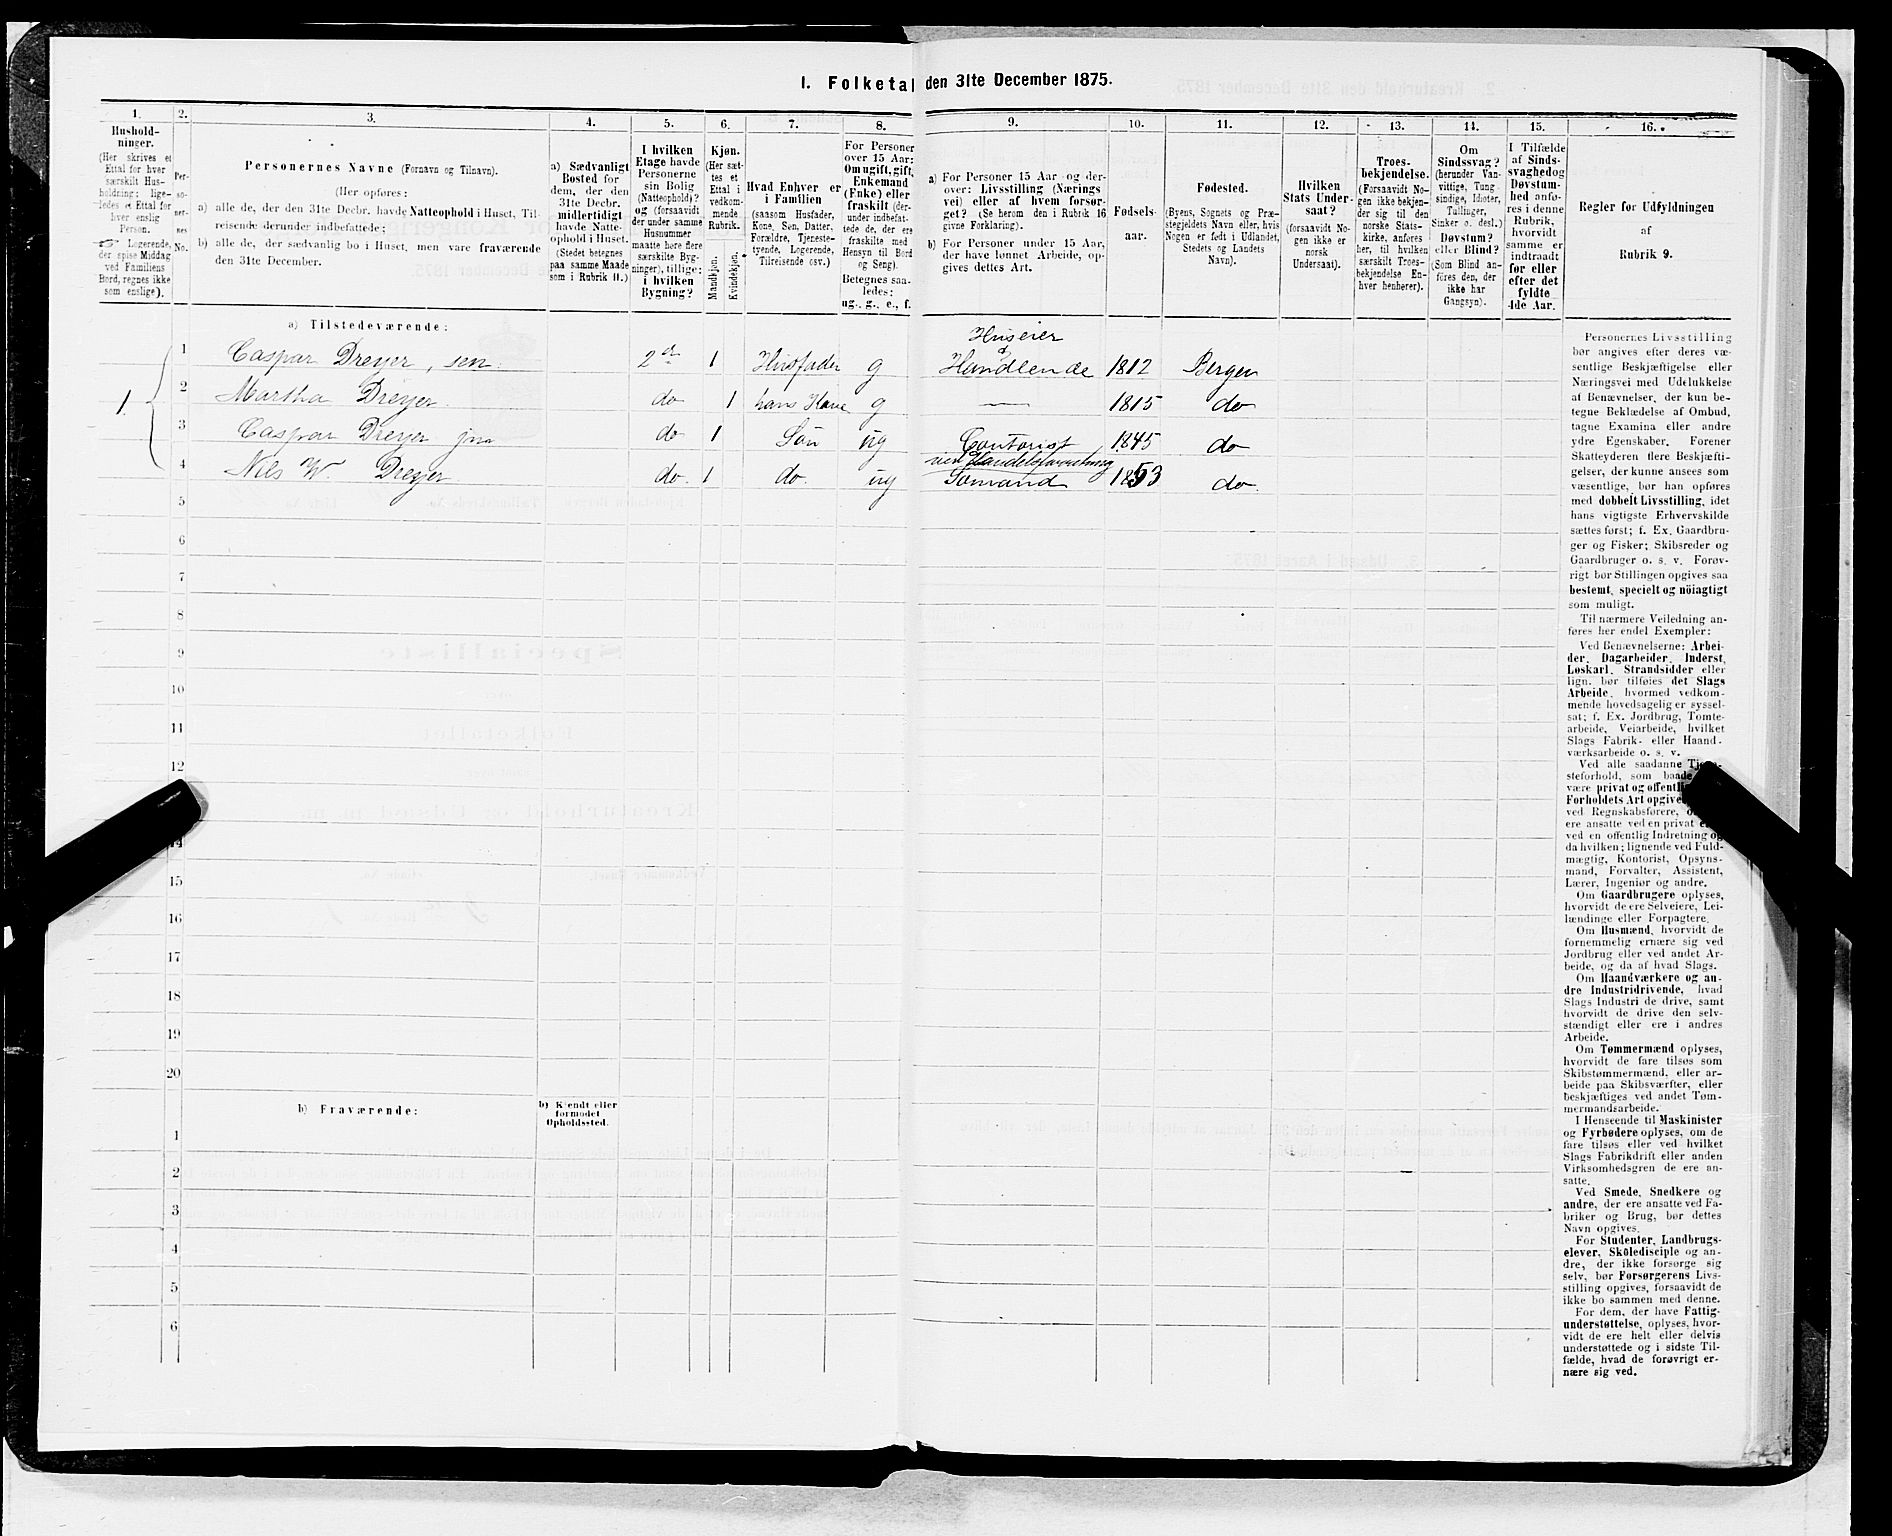 1. Folketal den 31te December 1875.
1.
2.
3.
4.
5.
6.
7.
8.
9.
10.
11.
12.
13.
14.
15.
16.
Hushold-
ninger.
(Her skrives et
Ettal for hver
særskilt Hus-
holdning; lige-
ledes et Ettal for
hver enslig
Person.
Logerende,
der spise Middag
ved Familiens
Bord, regnes ikke
som enslige).
Per-
so-
ner-
nes
No.
Personernes Navne (Fornavn og Tilnavn).
(Her opføres:
a) alle de, der den 31te Decbr. havde Natteophold i Huset, Til-
reisende derunder indbefattede;
b) alle de, der sædvanlig bo i Huset, men vare fraværende
den 31te December.
a) Sædvanligt
Bosted for
dem, der den
31te Decbr.
midlertidigt
havde Natte-
ophold i Huset.
(Stedet betegnes
paa samme Maade
som i Rubrik 11.)
I hvilken
Etage havde
Personerne
sin Bolig
(Natteophold)?
og (forsaavidt
der under samme
Husnummer
maatte høre flere
særskilte Byg-
ninger), tillige:
i hvilken
Bygning?
Kjøn.
(Her sæt-
tes et
Ettal i
vedkom-
mende
Rubrik.
Mandkjøn.
Kvindekjøn.
Hvad Enhver er
i Familien
(saasom Husfader,
Kone, Søn, Datter,
Forældre, Tjeneste-
tyende, Logerende,
Tilreisende osv.)
For Personer
over 15 Aar:
Om ugift, gift,
Enkemand
(Enke) eller
fraskilt (der-
under indbefat-
tede de, der ere
fraskilte med
Hensyn til Bord
og Seng).
Betegnes saa-
ledes:
ug., g., e., f.
a) For Personer 15 Aar og der-
over: Livsstilling (Nærings
vei) eller af hvem forsør-
get? (Se herom den i Rubrik 16
givne Forklaring).
b) For Personer under 15 Aar,
der have lønnet Arbeide, op-
gives dettes Art.
Fødsels-
aar.
Fødested.
(Byens, Sognets og Præ-
stegjeldets Navn eller, hvis
Nogen er født i Udlandet,
Stedets og Landets
Navn).
Hvilken
Stats Under-
saat?
(forsaavidt No-
gen ikke er
norsk
Undersaat).
Troes-
bekjendelse.
(Forsaavidt No-
gen ikke bekjen-
der sig til den
norske Stats-
kirke, anføres
her, til hvilken
særskilt Troes-
bekjendelse En-
hver henhører).
Om
Sindssvag?
(herunder Van-
vittige, Tung
sindige, Idioter,
Tullinger,
Sinker o. desl.)
Døvstum?
eller Blind?
(Som Blind an-
føres den, der
ikke har
Gangsyn).
I Tilfælde
af Sinds-
svaghed og
Døvstum-
hed anfø-
res i denne
Rubrik,
hvorvidt
samme er
indtraadt
før eller
efter det
fyldte
4de Aar.
Regler for Udfyldningen
af
Rubrik 9.
a) Tilstedeværende:
Huseier
1 Caspar Dreyer, sen. 2den 1 Husfader g & Handlende 1812 Bergen
1. 2 Martha Dreyer. do 1 hans Kone g — 1815 do
3 Caspar Dreyer jnr do 1 Søn ug Contorist 1845 do
ved Handelsforretning
4 Nils W. Dreyer do. 1 do. ug Sømand 1853 do.
5
6
7
8
9
10
11
12
14
15
16
17
18
19
20
b) Fraværende:
b) Kjendt eller
formodet
Opholdssted.
1
2
3
4
5
6
Personernes Livsstilling
bør angives efter deres væ-
sentlige Beskjæftigelse eller
Næringsvei med Udelukkelse
af Benævnelser, der kun be-
tegne Beklædelse af Ombud,
tagne Examina eller andre
ydre Egenskaber. Forener
Skatteyderen flere Beskjæfti-
gelser, der kunne ansees som
væsentlige, bør han opføres
med dobbelt Livsstilling, idet
hans vigtigste Erhvervskilde
sættes først; f. Ex. Gaardbru-
ger og Fisker; Skibsreder og
Gaardbruger o. s. v. Forøv-
rigt bør Stillingen opgives saa
bestemt, specielt og nöiagtigt
som muligt.
Til nærmere Veiledning an-
føres her endel Exempler:
Ved Benævnelserne: Arbei-
der, Dagarbeider, Inderst,
Løskarl, Strandsidder eller
lign. bør tilføies det Slags
Arbeide, hvormed vedkom-
mende hovedsagelig er syssel-
sat; f. Ex. Jordbrug, Tomte-
arbeide, Veiarbeide, hvilket
Slags Fabrik- eller Haand-
værksarbeide o. s. v.
Ved alle saadanne
steforhold, som
være privat og
Forholdets Art
ved Regnskabsførere,
ere ansatte ved en privat
ved en offentlig Indretning og
da hvilken; lignende ved Fuld-
mægtig, Kontorist, Opsyns-
mand, Forvalter, Assistent,
Lærer, Ingeniør og andre.
Om Gaardbrugere oplyses,
hvorvidt de ere Selveiere, Lei-
lændinge eller Forpagtere.
Om Husmænd, hvorvidt de
fornemmelig ernære sig ved
Jordbrug eller ved andet Ar-
beide, og da af hvad Slags.
Om Haandværkere og an-
dre Industridrivende, hvad
Slags Industri de drive, samt
hvorvidt de drive den selv-
stændigt eller ere i andres
Arbeide.
Om Tømmermænd oplyses,
hvorvidt de fare tilsøs som
Skibstømmermænd, eller ar-
beide paa Skibsværfter, eller
beskjæftiges ved andet Tøm-
mermandsarbeide.
I Henseende til Maskinister
og Fyrbødere oplyses, om de
fare tilsøs eller ved hvilket
Slags Fabrikdrift eller anden
Virksomhedsgren de ere an-
satte.
Ved Smede, Snedkere og
andre, der ere ansatte ved Fa-
briker og Brug, bør dettes
Navn opgives.
For Studenter, Landbrugs-
elever, Skoledisciple og an-
dre, der ikke forsørge sig
selv, bør Forsørgerens Livs-
stilling opgives, forsaavidt de
ikke bo sammen med denne.
For dem, der have Fattig-
understøttelse, oplyses, hvor-
vidt de ere helt eller delvis
understøttede og i sidste Til-
fælde, hvad de forøvrigt er-
nære sig ved.